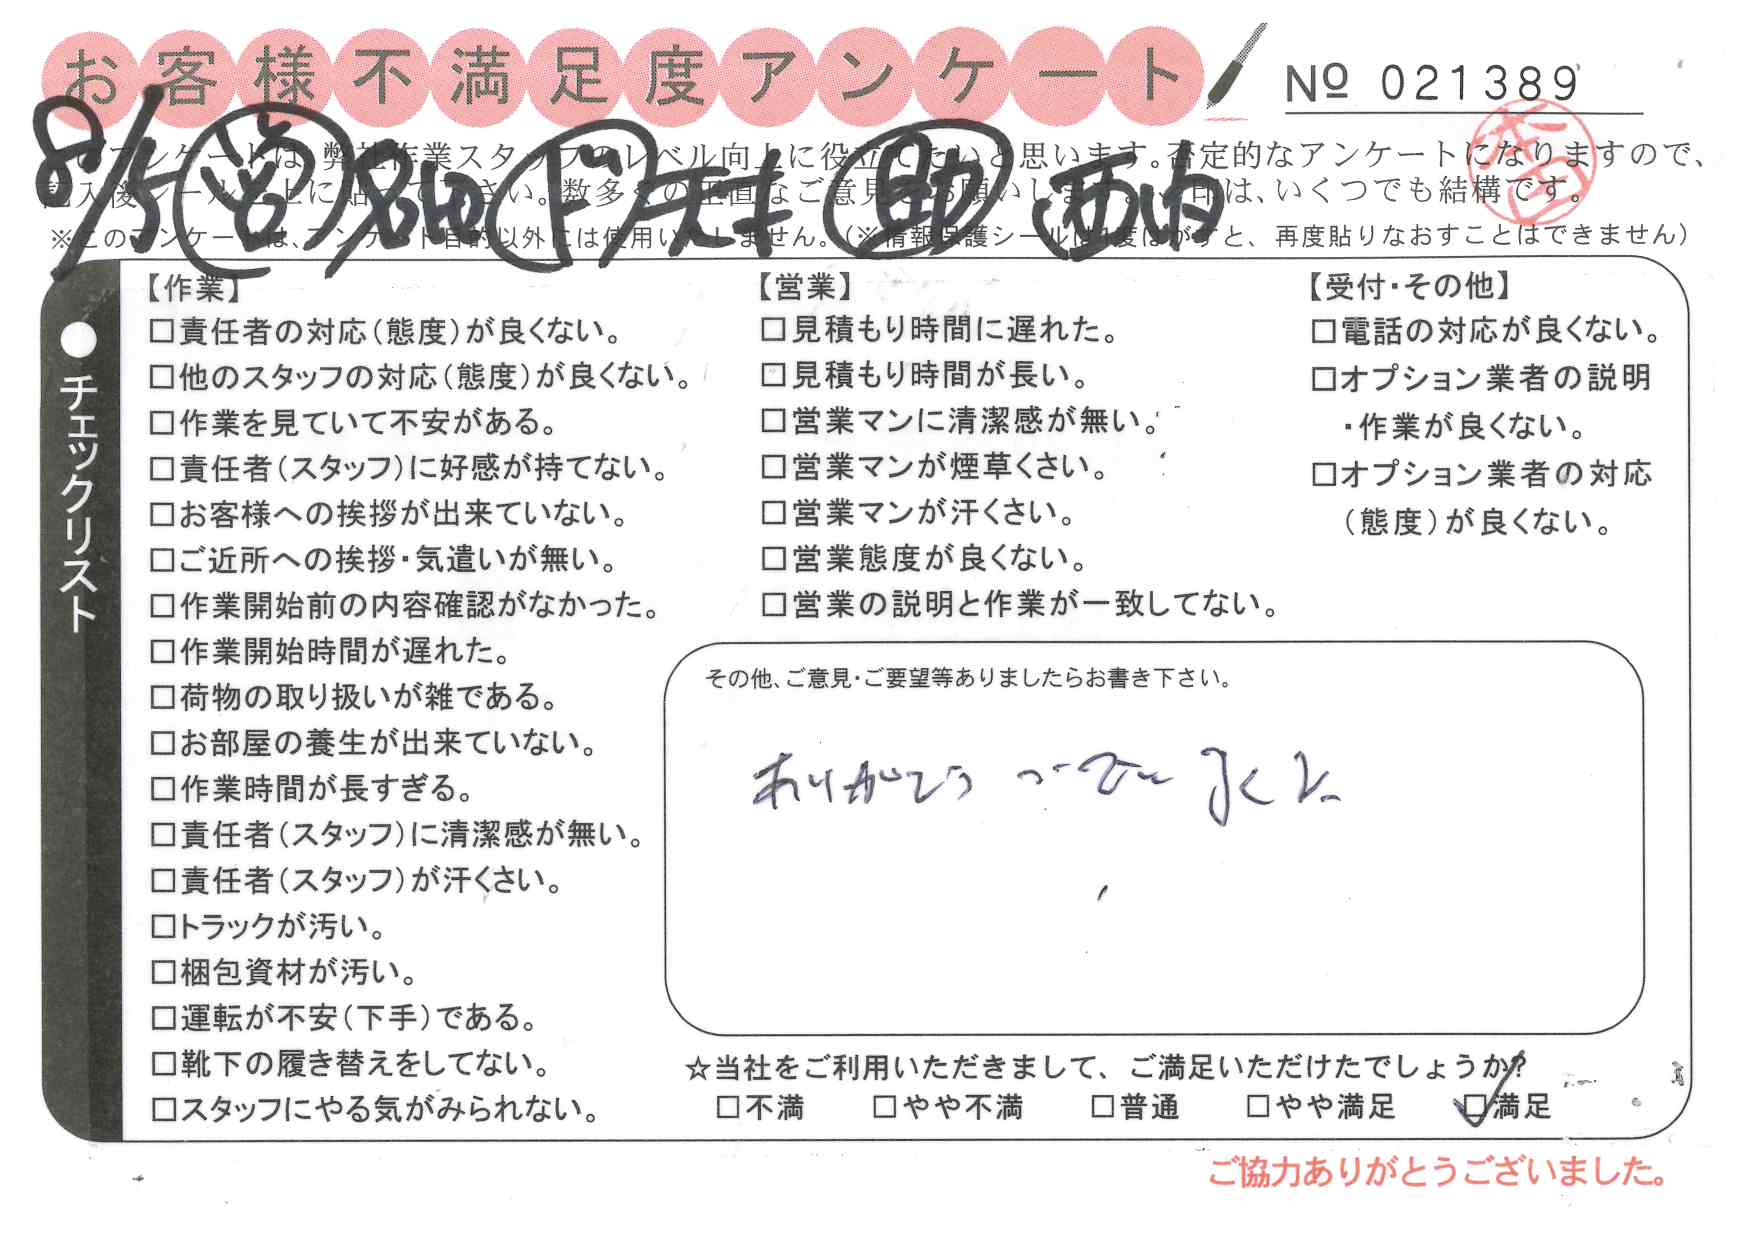 お客様不満足度アンケート
№ 021389
8/5 営 ド 助 西内
このアンケートは、弊社作業スタッフのレベル向上に役立てたいと思います。否定的なアンケートになりますので、
記入後シールを上に貼って下さい。数多くの正直なご意見をお願いします。印は、いくつでも結構です。
※このアンケートは、アンケート目的以外には使用いたしません。（※情報保護シールは1度はがすと、再度貼りなおすことはできません）
●チェックリスト
【作業】
□責任者の対応（態度）が良くない。
□他のスタッフの対応（態度）が良くない。
□作業を見ていて不安がある。
□責任者（スタッフ）に好感が持てない。
□お客様への挨拶が出来ていない。
□ご近所への挨拶・気遣いが無い。
□作業開始前の内容確認がなかった。
□作業開始時間が遅れた。
□荷物の取り扱いが雑である。
□お部屋の養生が出来ていない。
□作業時間が長すぎる。
□責任者（スタッフ）に清潔感が無い。
□責任者（スタッフ）が汗くさい。
□トラックが汚い。
□梱包資材が汚い。
□運転が不安（下手）である。
□靴下の履き替えをしてない。
□スタッフにやる気がみられない。
【営業】
□見積もり時間に遅れた。
□見積もり時間が長い。
□営業マンに清潔感が無い。
□営業マンが煙草くさい。
□営業マンが汗くさい。
□営業態度が良くない。
□営業の説明と作業が一致してない。
【受付・その他】
□電話の対応が良くない。
□オプション業者の説明
・作業が良くない。
□オプション業者の対応
（態度）が良くない。
その他、ご意見・ご要望等ありましたらお書き下さい。
ありがとうございました
☆当社をご利用いただきまして、ご満足いただけたでしょうか?
□不満 □やや不満 □普通 □やや満足 ☑満足
ご協力ありがとうございました。